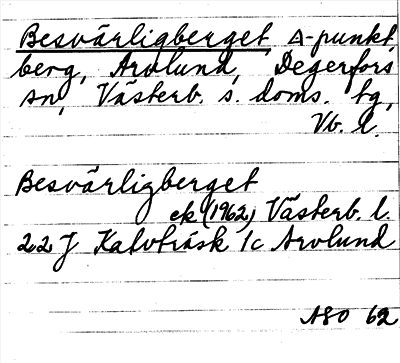 Besvärligberget, Δ-punkt,
berg, Arvlund, Degerfors
sn, Västerb. s. doms. tg,
Vb. l.
Besvärligberget
ek (1962) Västerb. l.
22 J Kalvträsk 1c Arvlund
ASO 62